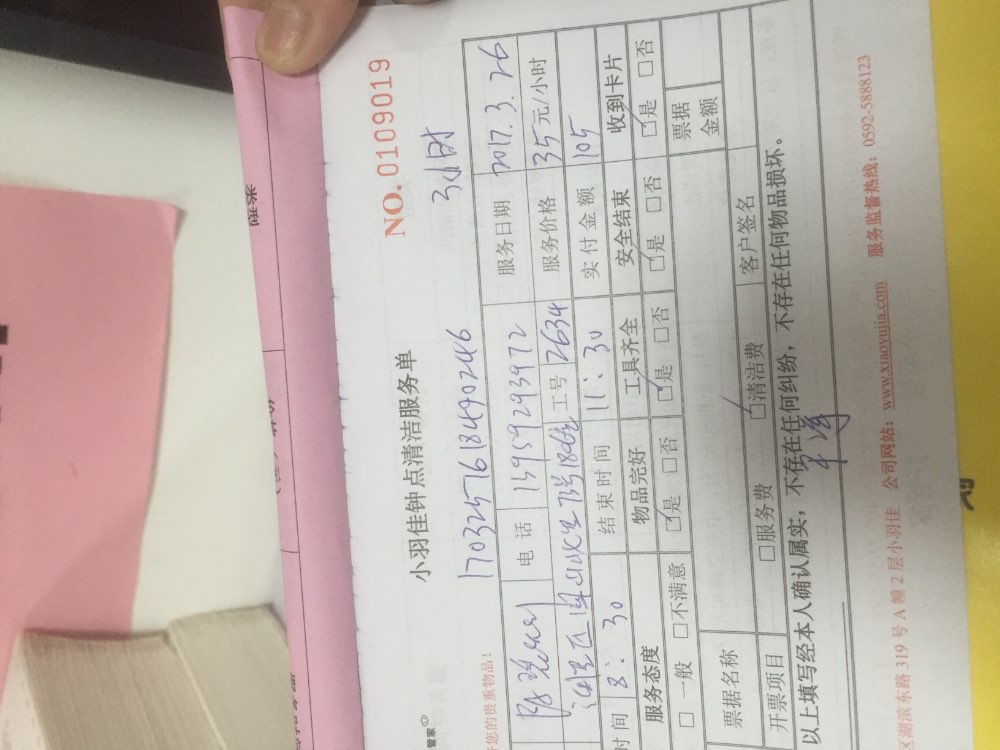 类型
NO. 0109019
小羽佳钟点清洁服务单
3小时
管家
您的贵重物品！
170325761849 0246
电话 13959293972 服务日期 2017.3.26
工号 2634 服务价格 35元/小时
时间 8：30 结束时间 11：30 实付金额 105
服务态度 物品完好 工具齐全 安全结束 收到卡片
□一般 □不满意 ☑是 □否 ☑是 □否 ☑是 □否 ☑是 □否
票据名称 票据金额
开票项目 □服务费 ☑清洁费 客户签名
以上填写经本人确认属实，不存在任何纠纷，不存在任何物品损坏。
湖滨东路 319 号 A 幢 2 层小羽佳 公司网站：www.xiaoyujia.com 服务监督热线：0592-5888123